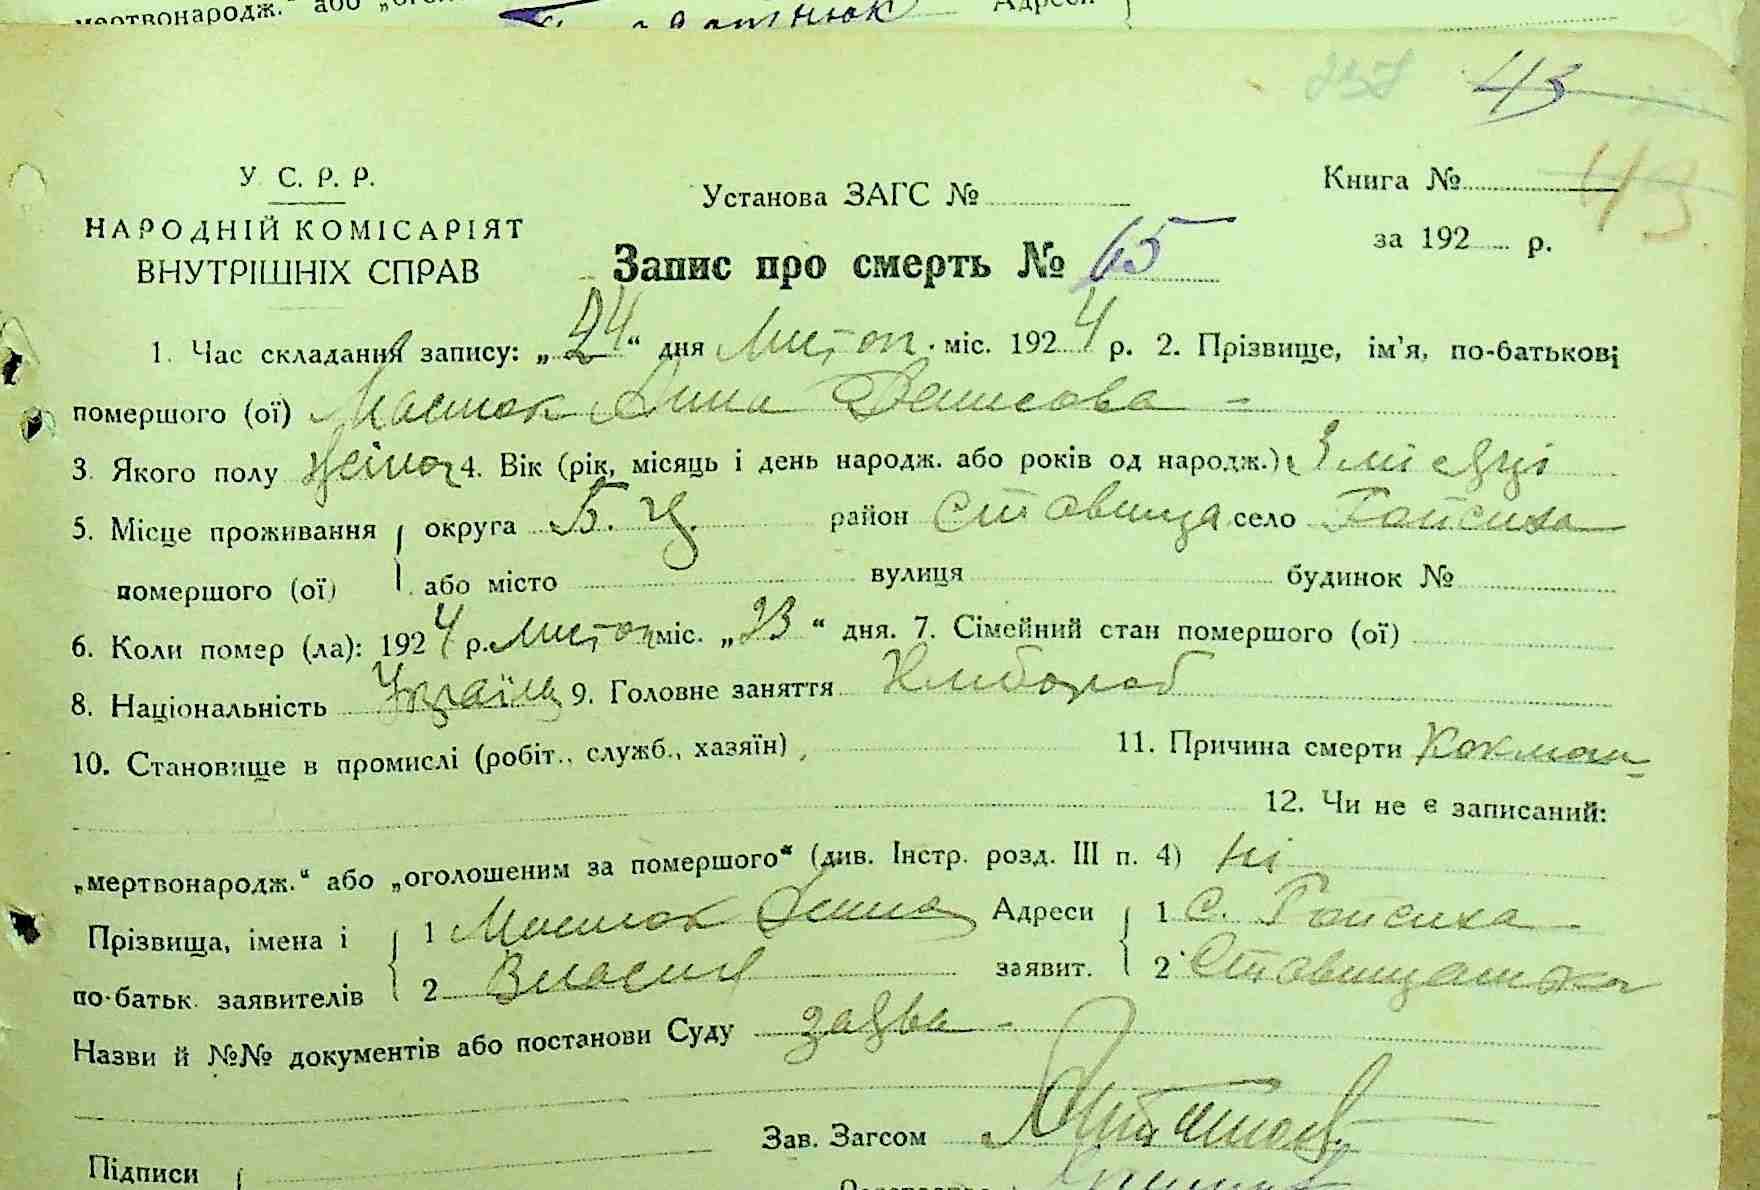 мертвонародж." або
Адреси
43
Книга № 43
У. С. Р. Р.
Установа ЗАГС №
НАРОДНІЙ КОМІСАРІЯТ
за 192 р.
ВНУТРІШНІХ СПРАВ
Запис про смерть № 65
1. Час складання запису: „24" дня Листоп. міс. 1924 р. 2. Прізвище, ім'я, по-батькові
помершого (ої) Денисова -
3. Якого полу жіноч 4. Вік (рік, місяць і день народж. або років од народж.) 3 місяці
5. Місце проживання округа Б. Ц. район Ставища село Гайсиха
помершого (ої) або місто вулиця будинок №
6. Коли помер (ла): 1924 р. Листоп міс. „23" дня. 7. Сімейний стан помершого (ої)
8. Національність Україн 9. Головне заняття Хлібороб
10. Становище в промислі (робіт., служб., хазяїн) 11. Причина смерти Коклюш
12. Чи не є записаний:
„мертвонародж." або „оголошеним за помершого" (див. Інстр. розд. III п. 4) ні
Прізвища, імена і 1 Денис Адреси 1 С. Гайсиха
по-батьк. заявителів 2 заявит. 2 Ставищанськ
Назви й №№ документів або постанови Суду заява -
Зав. Загсом
Підписи